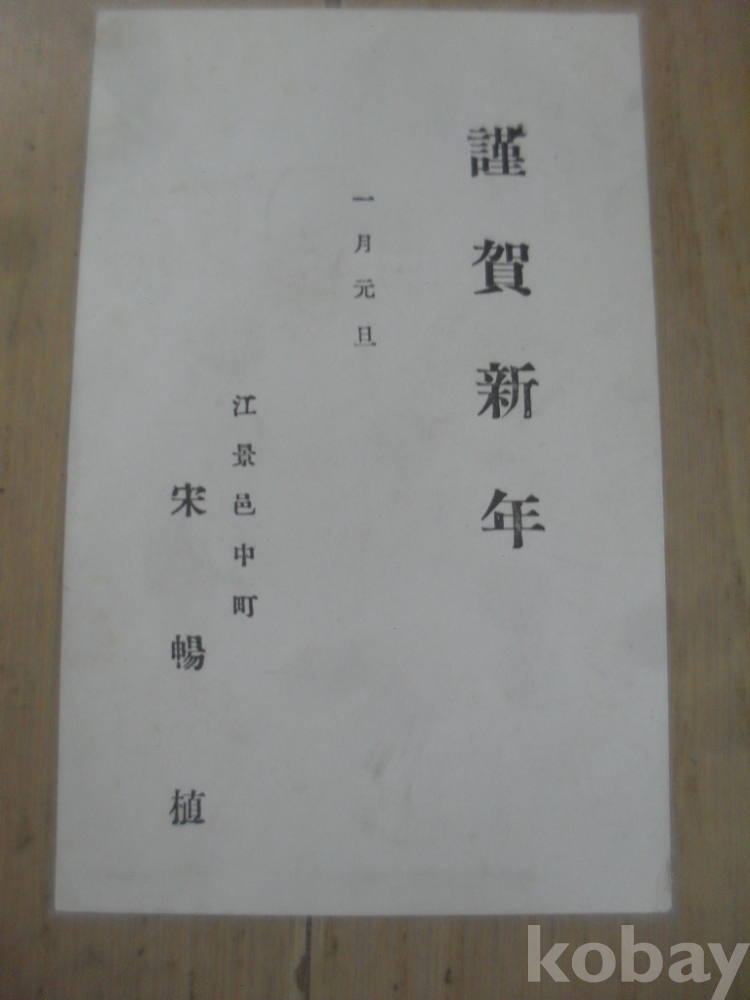 謹賀新年
一月元旦
江景邑中町
宋暢植
kobay